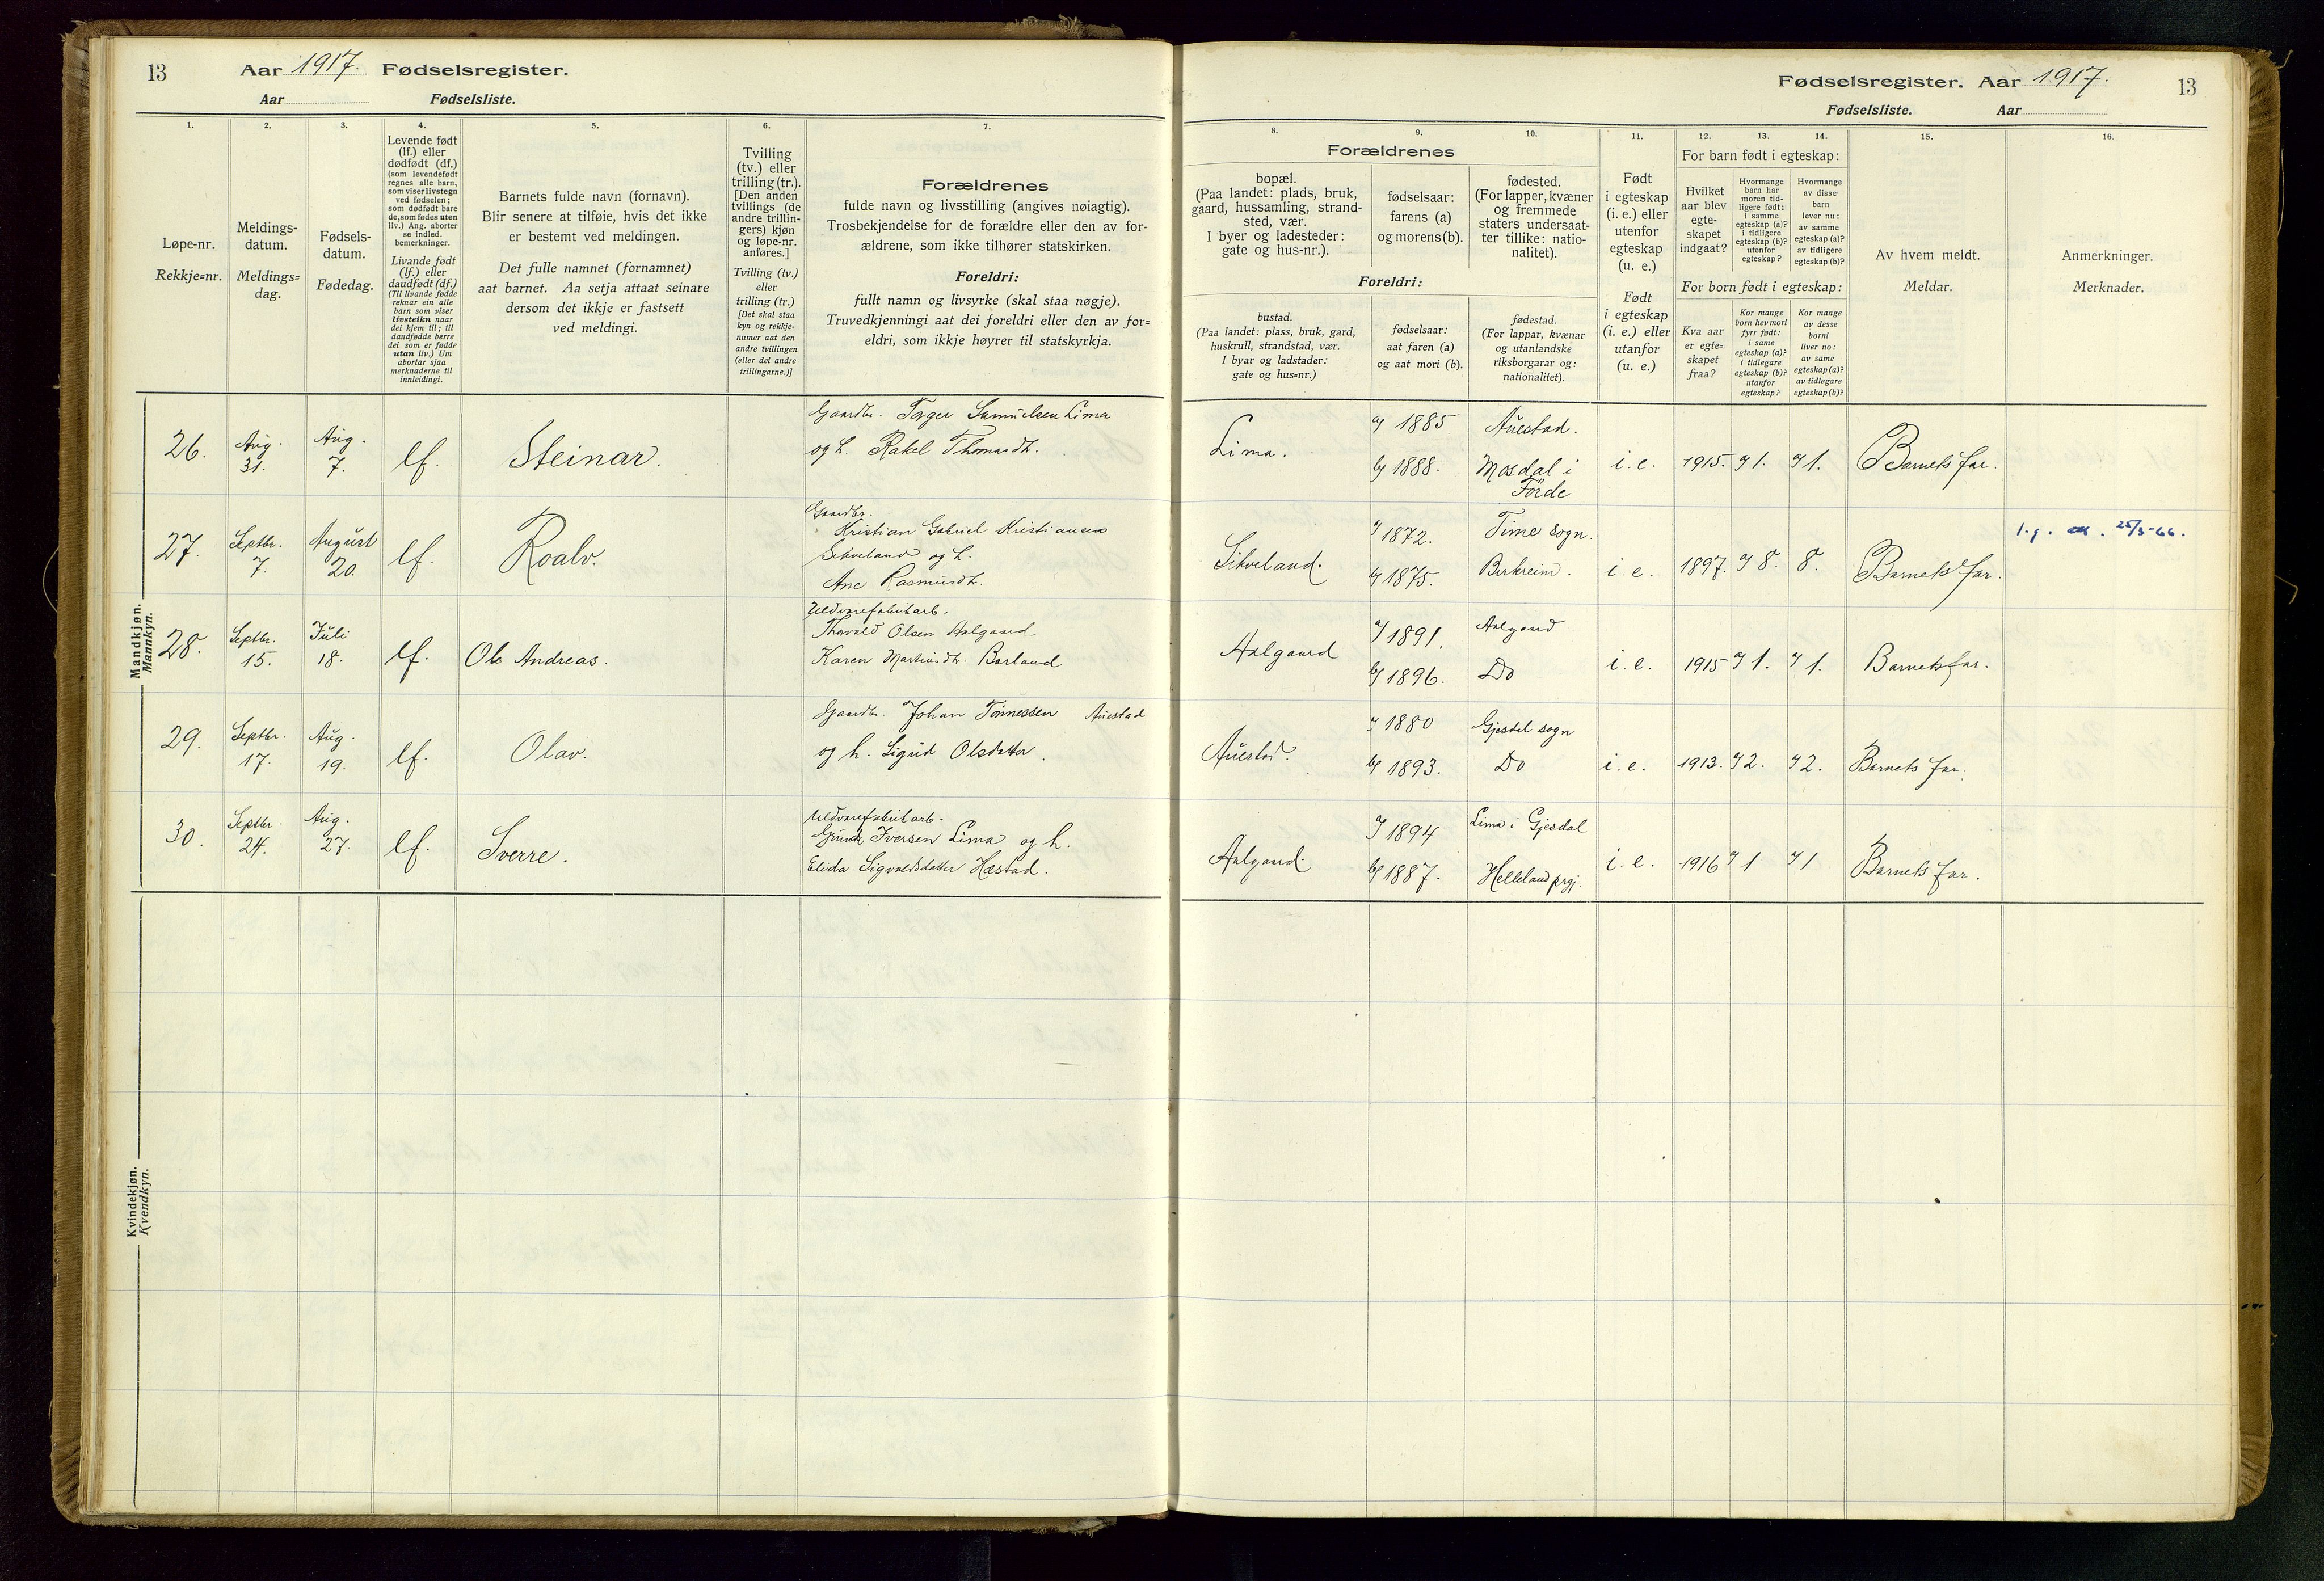 13
Aar 1917. Fødselsregister.
Aar Fødselsliste.
1.
2.
3.
4.
5.
6.
7.
Løpe-nr.
Rekkje=nr.
Meldings-
datum.
Meldings=
dag.
Fødsels-
datum.
Fødedag.
Levende født
(lf.) eller
dødfødt (df.)
(som levendefødt
regnes alle barn,
som viser livstegn
ved fødselen;
som dødfødt bare
de, som fødes uten
liv.) Ang. aborter
se indled.
bemerkninger.
Livande født
(lf.) eller
daudfødt (df.)
(Til livande fødde
reknar ein alle
barn som viser
livsteikn naar
dei kjem til; til
daudfødde berre
dei som er fødde
utan liv.) Um
abortar sjaa
merknaderne til
innleidingi.
Barnets fulde navn (fornavn).
Blir senere at tilføie, hvis det ikke
er bestemt ved meldingen.
Det fulle namnet (fornamnet)
aat barnet. Aa setja attaat seinare
dersom det ikkje er fastsett
ved meldingi.
Tvilling
(tv.) eller
trilling (tr.).
[Den anden
tvillings (de
andre trillin-
gers) kjøn
og løpe-nr.
anføres.]
Tvilling (tv.)
eller
trilling (tr.)
[Det skal staa
kyn og rekkje-
numer aat den
andre tvillingen
(eller dei andre
trillingarne.)]
Forældrenes
fulde navn og livsstilling (angives nøiagtig).
Trosbekjendelse for de forældre eller den av for-
ældrene, som ikke tilhører statskirken.
Foreldri:
fullt namn og livsyrke (skal staa nøgje).
Truvedkjenningi aat dei foreldri eller den av for=
eldri, som ikkje høyrer til statskyrkja.
Mandkjøn.
Mannkyn.
26.
Aug.
31.
Aug.
7.
lf.
Steinar.
Gaardbr. Torger Samuelsen Lima
og h. Rakel Thomasdtr.
27.
Septbr.
7.
August
20.
lf.
Roalv.
Gaardbr.
Kristian Gabriel Kristiansen
Sikveland og h.
Ane Rasmusdtr.
28.
Septbr.
15.
Juli
18.
lf.
Ole Andreas.
Uldvarefabrikarb.
Thorvald Olsen Aalgaard
Karen Martinsdtr. Borland
29.
Septbr.
17.
Aug.
19.
lf.
Olav.
Gaardbr. Johan Tønnessen Auestad
og h. Sigrid Olsdatter.
30.
Septbr.
24.
Aug.
27.
lf.
Sverre.
Uldvarefabrikarb.
Iversen Lima og h.
Elida Sigvaldsdatter Hæstad.
Kvindekjøn.
Kvendkyn.
Fødselsregister. Aar 1917.
13
Fødselsliste. Aar
8.
9.
10.
11.
12.
13.
14.
15.
16.
Forældrenes
bopæl.
(Paa landet: plads, bruk,
gaard, hussamling, strand-
sted, vær.
I byer og ladesteder:
gate og hus-nr.).
fødselsaar:
farens (a)
og morens (b).
fødested.
(For lapper, kvæner
og fremmede
staters undersaat-
ter tillike: natio-
nalitet).
Foreldri:
bustad.
(Paa landet: plass, bruk, gard,
huskrull, strandstad, vær.
I byar og ladstader:
gate og hus=nr.)
fødselsaar:
aat faren (a)
og aat mori (b).
fødestad.
(For lappar, kvænar
og utanlandske
riksborgarar og:
nationalitet).
Født
i egteskap
(i. e.) eller
utenfor
egteskap
(u. e.)
Født
i egteskap
(i. e.) eller
utanfor
(u. e.)
For barn født i egteskap:
Hvilket
aar blev
egte-
skapet
indgaat?
Hvormange
barn har
moren tid-
ligere født:
i samme
egteskap (a)?
i tidligere
egteskap (b)?
utenfor
egteskap?
Hvormange
av disse
barn
lever nu:
av samme
egteskap (a)?
av tidligere
egteskap (b)?
For born født i egteskap:
Kva aar
er egte=
skapet
fraa?
Kor mange
born hev mori
fyrr født:
i same
egteskap (a)?
i tidlegare
egteskap (b)?
utanfor
egteskap?
Kor mange
av desse
borni
liver no:
av same
egteskap (a)?
av tidlegare
egteskap (b)?
Av hvem meldt.
Meldar.
Anmerkninger.
Merknader.
Lima.
a) 1885
b) 1888.
Auestad.
Mosdal i
Førde
i. e.
1915.
a) 1.
a) 1.
Barnets far.
Sikveland.
a) 1872.
b) 1875.
Time sogn.
Birkreim.
i. e.
1897.
a) 8.
8.
Barnets far.
25/5-66.
Aalgaard
a) 1891.
b) 1896.
Aalgaard
Do
i. e.
1915
a) 1.
a) 1.
Barnets far.
Auestad.
a) 1880
b) 1893.
Gjesdal sogn
Do
i. e.
1913.
a) 2.
a) 2.
Barnets far.
Aalgaard.
a) 1894
b) 1887.
Lima i Gjesdal
Helleland prgj.
i. e.
1916
a) 1
a) 1
Barnets far.